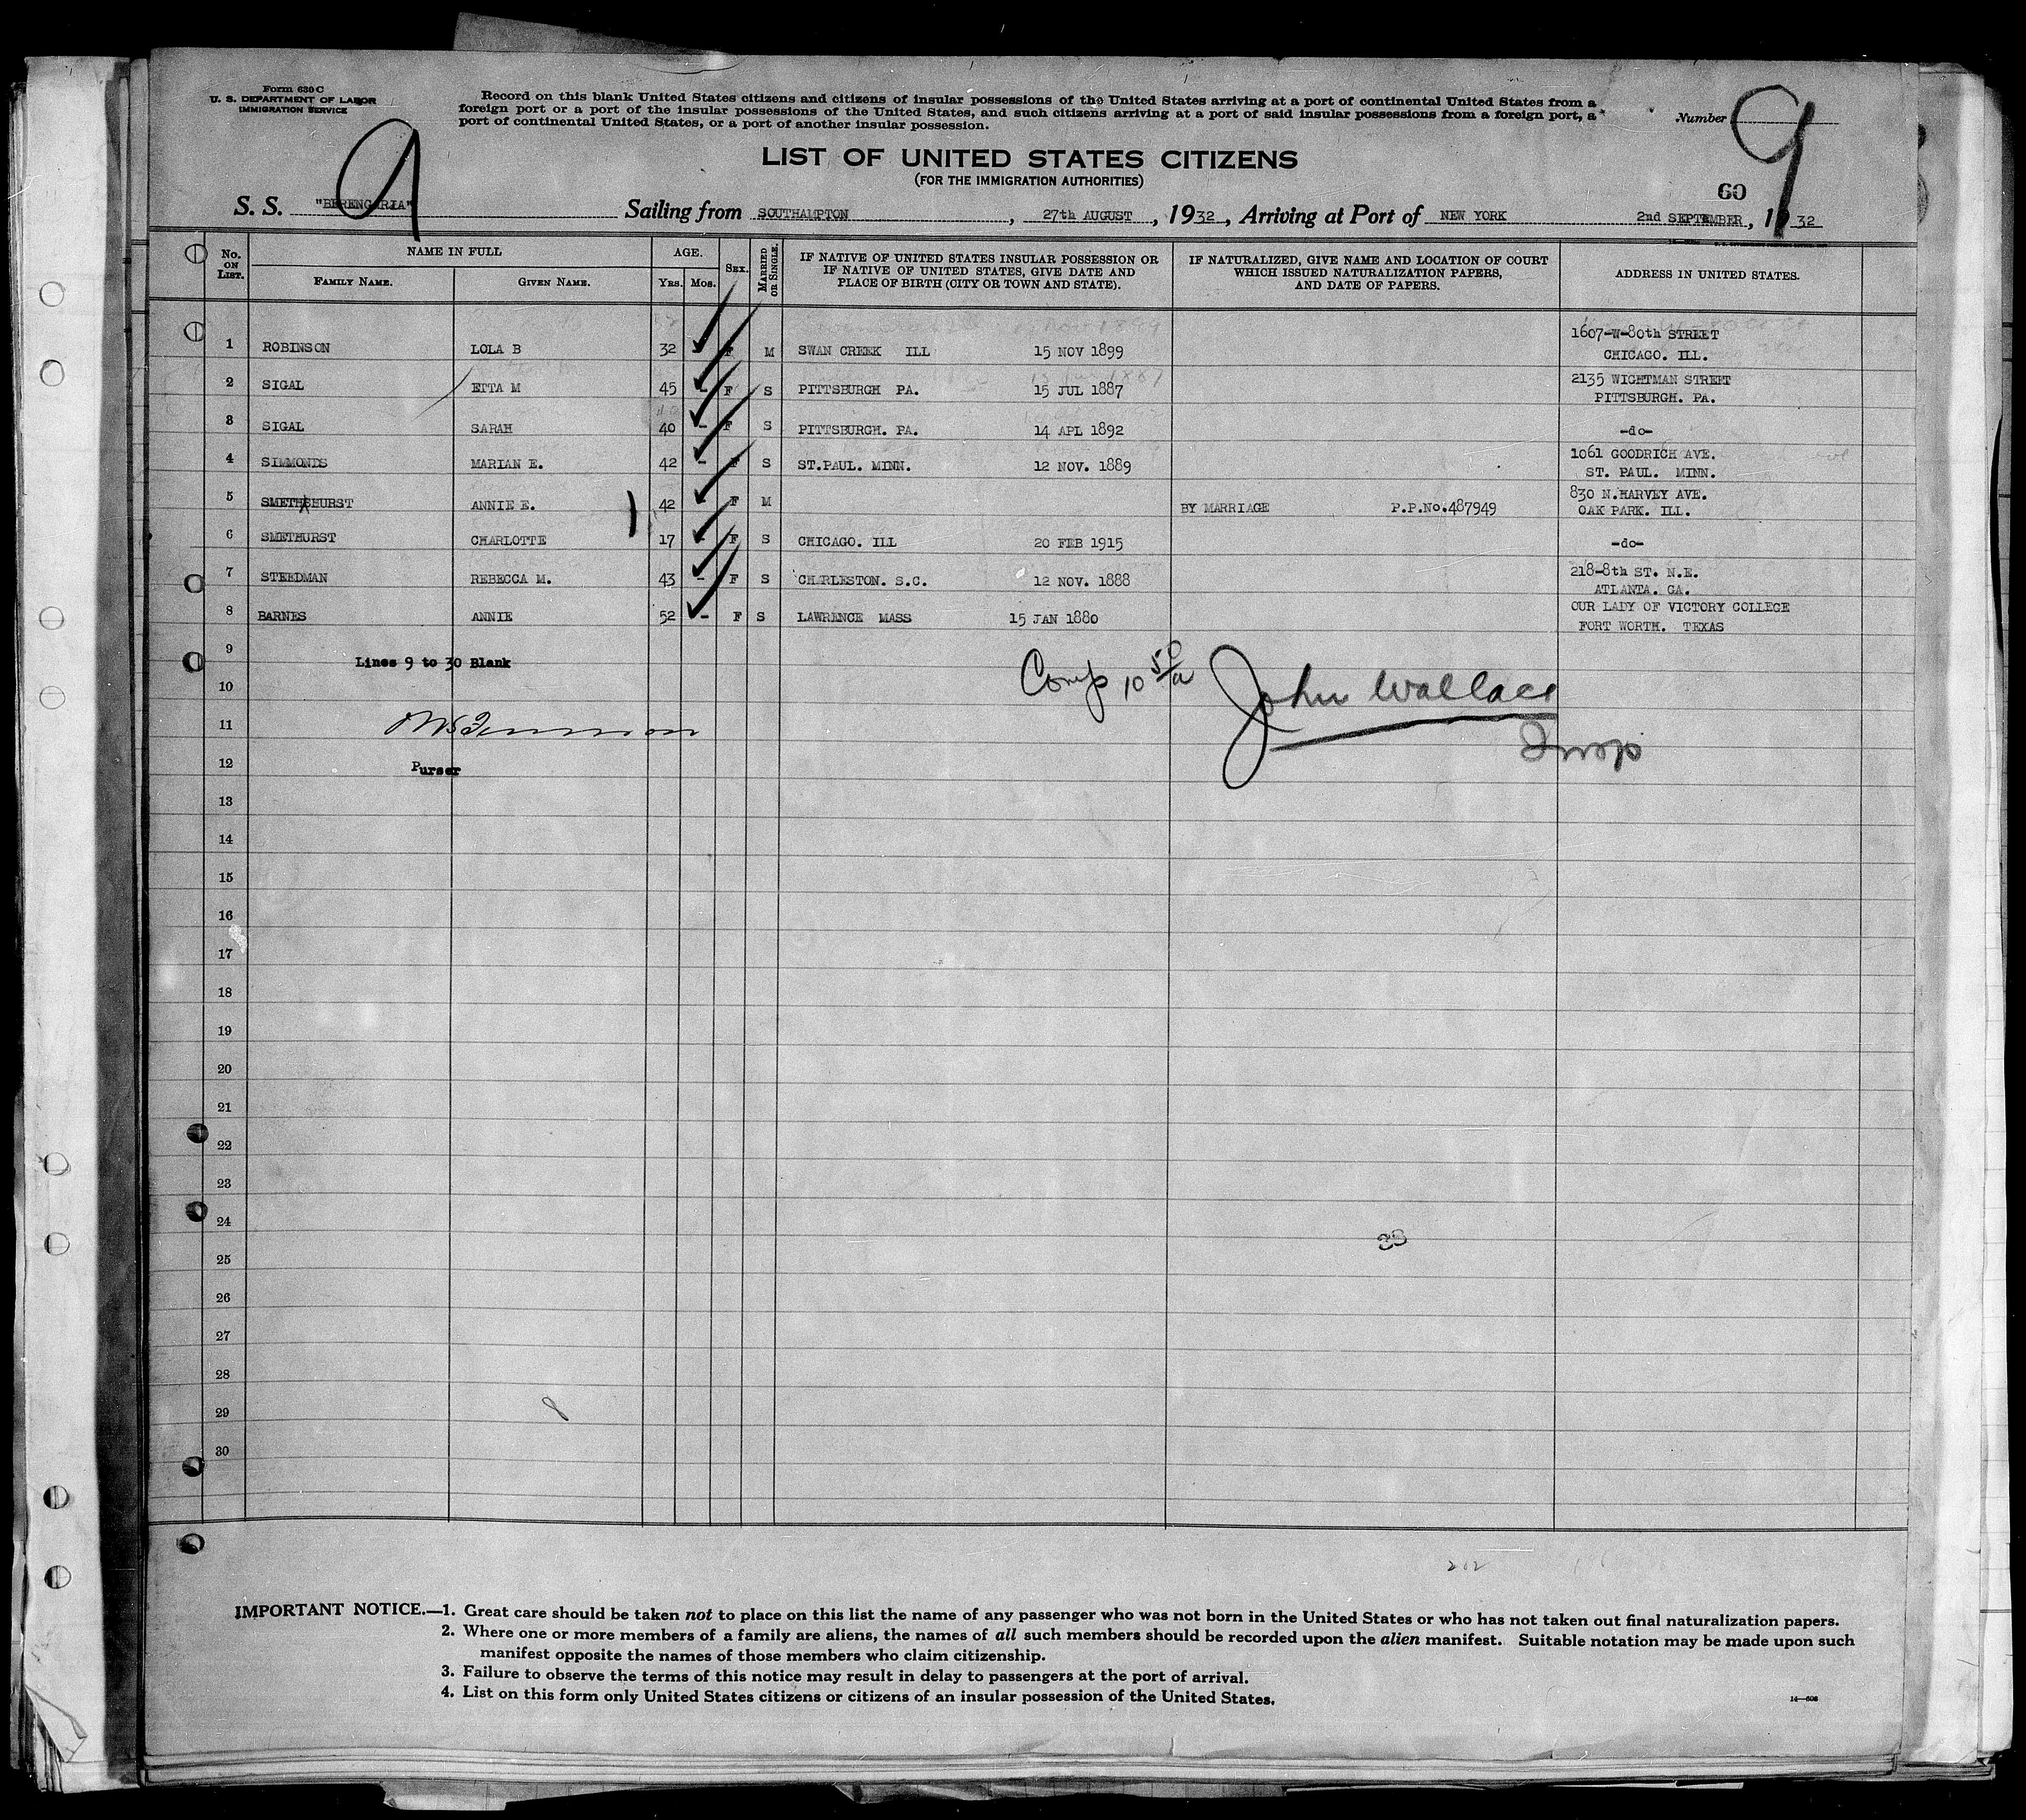 Form 630 C
U. S. DEPARTMENT OF LABOR
IMMIGRATION SERVICE
Record on this blank United States citizens and citizens of insular possessions of the United States arriving at a port of continental United States from a
foreign port or a port of the insular possessions of the United States, and such citizens arriving at a port of said insular possessions from a foreign port, a
port of continental United States, or a port of another insular possession.
Number 9
9
LIST OF UNITED STATES CITIZENS
(FOR THE IMMIGRATION AUTHORITIES)
60
S. S. "BERENGARIA" Sailing from SOUTHAMPTON, 27th AUGUST, 1932, Arriving at Port of NEW YORK 2nd SEPTEMBER, 1932
No. ON LIST. NAME IN FULL AGE. SEX. MARRIED OR SINGLE. IF NATIVE OF UNITED STATES INSULAR POSSESSION OR IF NATIVE OF UNITED STATES, GIVE DATE AND PLACE OF BIRTH (CITY OR TOWN AND STATE). IF NATURALIZED, GIVE NAME AND LOCATION OF COURT WHICH ISSUED NATURALIZATION PAPERS, AND DATE OF PAPERS. ADDRESS IN UNITED STATES.
FAMILY NAME. GIVEN NAME. YRS. MOS.
1 ROBINSON LOLA B 32 - F M SWAN CREEK ILL 15 NOV 1899 1607-W-80th STREET
CHICAGO. ILL.
2 SIGAL ETTA M 45 - F S PITTSBURGH PA. 15 JUL 1887 2135 WIGHTMAN STREET
PITTSBURGH. PA.
3 SIGAL SARAH 40 - F S PITTSBURGH. PA. 14 APL 1892 -do-
4 SIMMONDS MARIAN E. 42 - F S ST.PAUL. MINN. 12 NOV. 1889 1061 GOODRICH AVE.
ST. PAUL. MINN.
5 SMETHSHURST ANNIE E. 42 - F M BY MARRIAGE P.P.No.487949 830 N.HARVEY AVE.
OAK PARK. ILL.
6 SMETHURST CHARLOTTE 17 - F S CHICAGO. ILL 20 FEB 1915 -do-
7 STEEDMAN REBECCA M. 43 - F S CHARLESTON. S.C. 12 NOV. 1888 218-8th ST. N.E.
ATLANTA. GA.
8 BARNES ANNIE 52 - F S LAWRENCE MASS 15 JAN 1880 OUR LADY OF VICTORY COLLEGE
FORT WORTH. TEXAS
9 Lines 9 to 30 Blank
10 Comp 10 50/a John Wallace
11
Insp
12 Purser
13
14
15
16
17
18
19
20
21
22
23
24
25
26
27
28
29
30
202
IMPORTANT NOTICE.—1. Great care should be taken not to place on this list the name of any passenger who was not born in the United States or who has not taken out final naturalization papers.
2. Where one or more members of a family are aliens, the names of all such members should be recorded upon the alien manifest. Suitable notation may be made upon such
manifest opposite the names of those members who claim citizenship.
3. Failure to observe the terms of this notice may result in delay to passengers at the port of arrival.
4. List on this form only United States citizens or citizens of an insular possession of the United States.